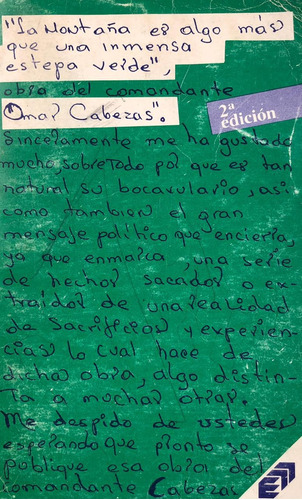 "La Montaña es algo más
que una inmensa
estepa verde",
obra del comandante
Omar Cabezas".
2ª
edición
Sinceramente me ha gustado
mucho, sobre todo por que es tan
natural su bocavulario, asi
como tambien el gran
mensaje político que encierra,
ya que enmarca, una serie
de hechos sacados o ex-
traidos de una realidad
de sacrificios y experien-
cias lo cual hace de
dicha obra, algo distin-
ta a muchas otras.
Me despido de ustedes
esperando que pronto se
publique esa obra del
comandante Cabezas